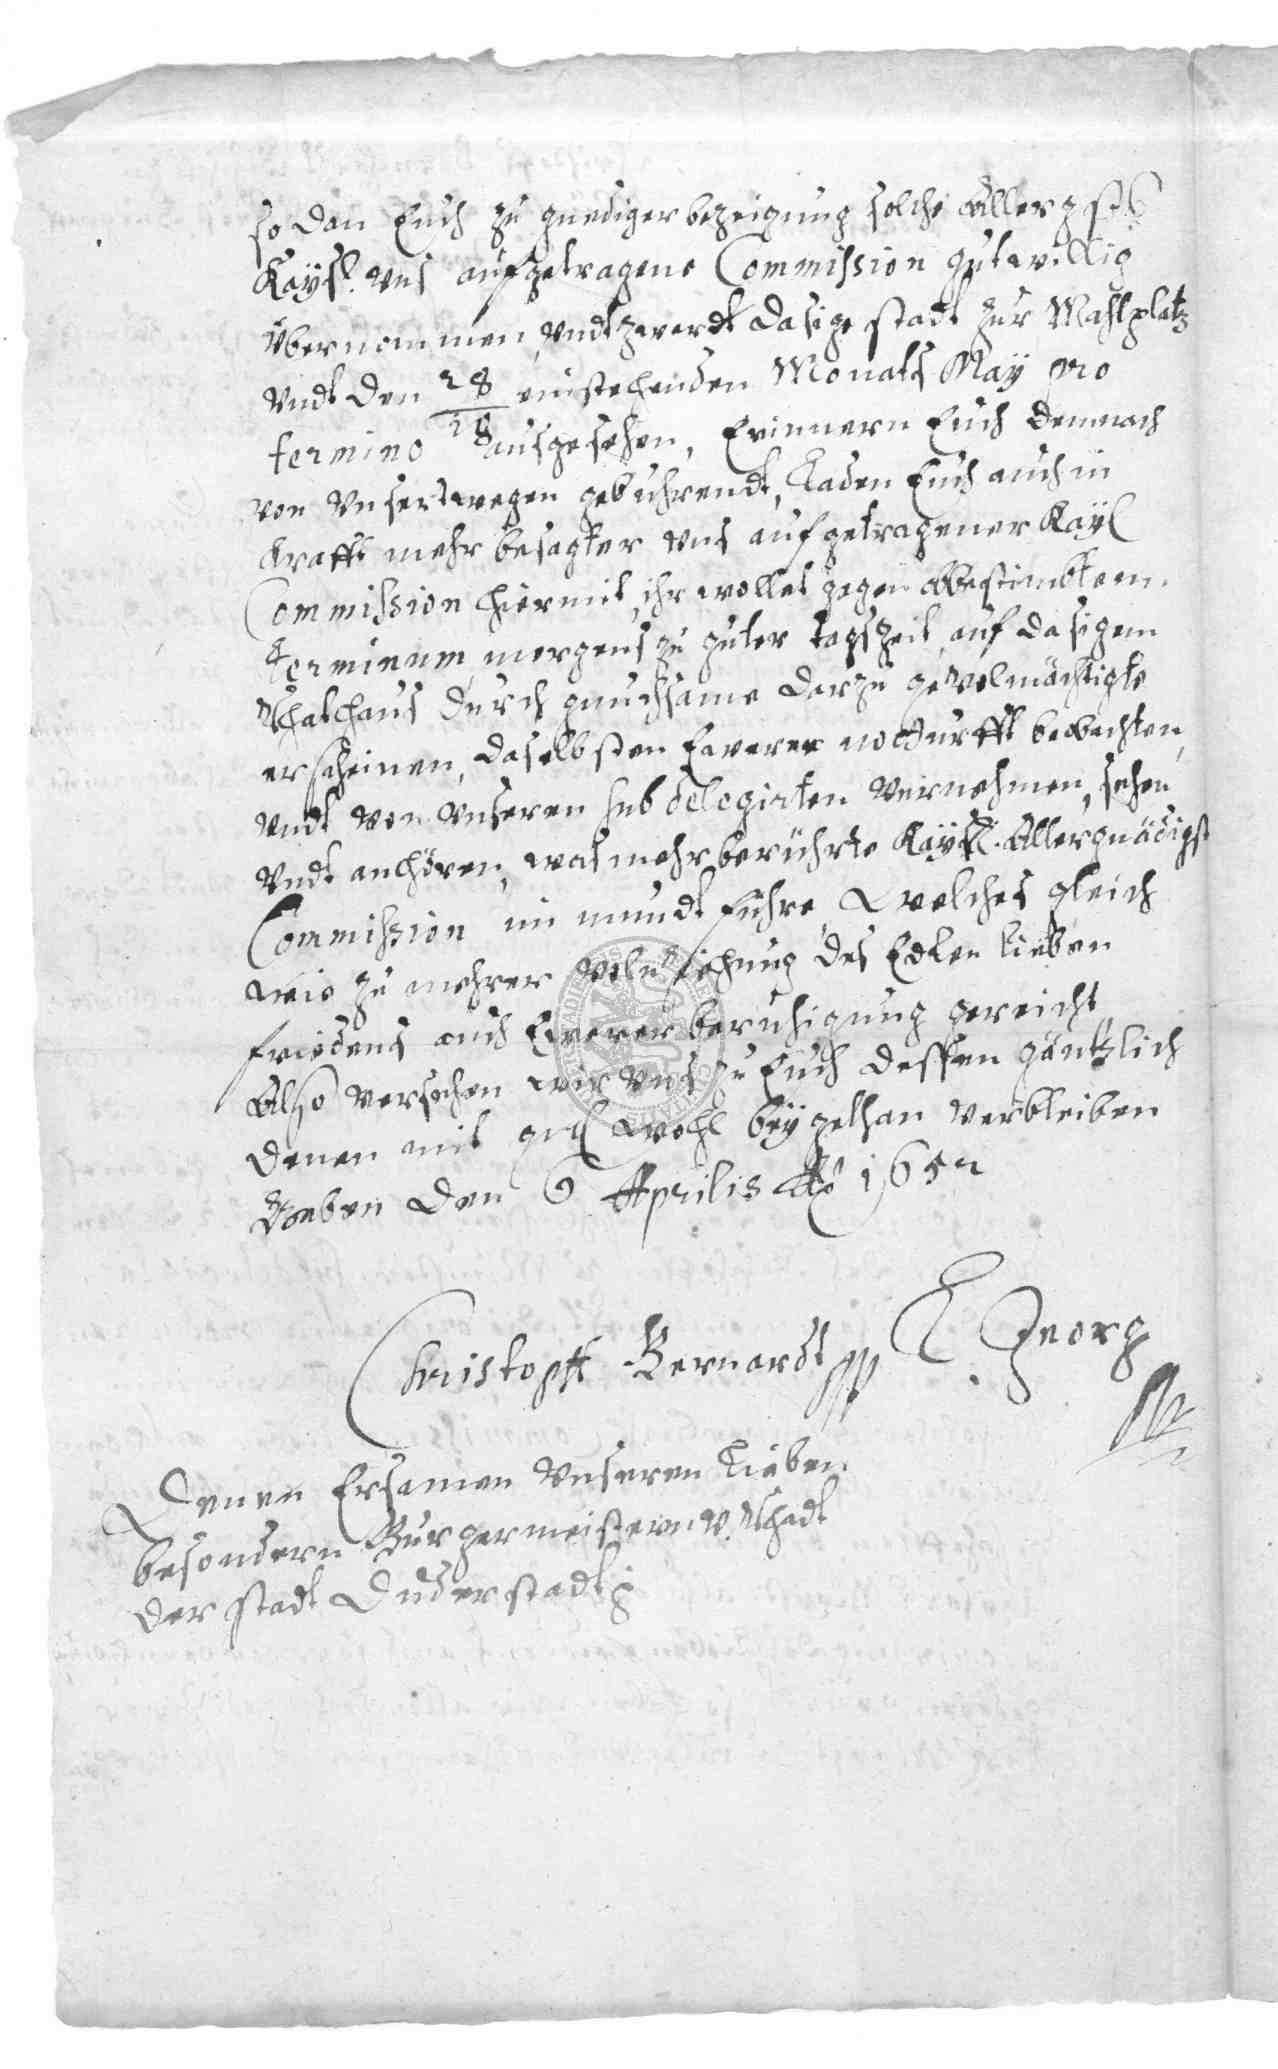 so dan Euch zu gnediger bezeigung solche Allergste
Kaysl. Uns aufgetragene Commission gutwillig
übernommen, undt zwerdt dasige stadt zur Mahlplatz
undt den 28/18 einstehenden Monats May pro
termino ausgesehen, Erinnern Euch demnach
von Unsertwegen gebührendt, Laden Euch auch in
krafft mehr besagter Uns aufgetragener Kayl
Commission hiermit, ihr wollet gegen obbestimbtem
terminum, morgens zu guter tagszeit, auf dasigem
Rhathaus durch gnuchsame darzu gevolmächtigte
erscheinen, daselbsten Ewerer notturfft beobachten,
undt von Unseren subdelegirten vernehmen, sehen
undt anhören, was mehr berührte Kaysl. Allergnädigst
Commission im mundt führe, welches gleich
wie zu mehrer volnziehung des Edlen lieben
friedens auch Ewerer beruhigung gereicht,
Also versehen wir uns zu Euch dessen gäntzlich
denen mit g. wohl beygethan verbleiben
Geben den 6 Aprilis Ao 1652
Christoph Bernardt A. Georg
Denen Ersamen Unseren Lieben
besondern Burgermeistern u. Rhadt
der stadt Duderstadt